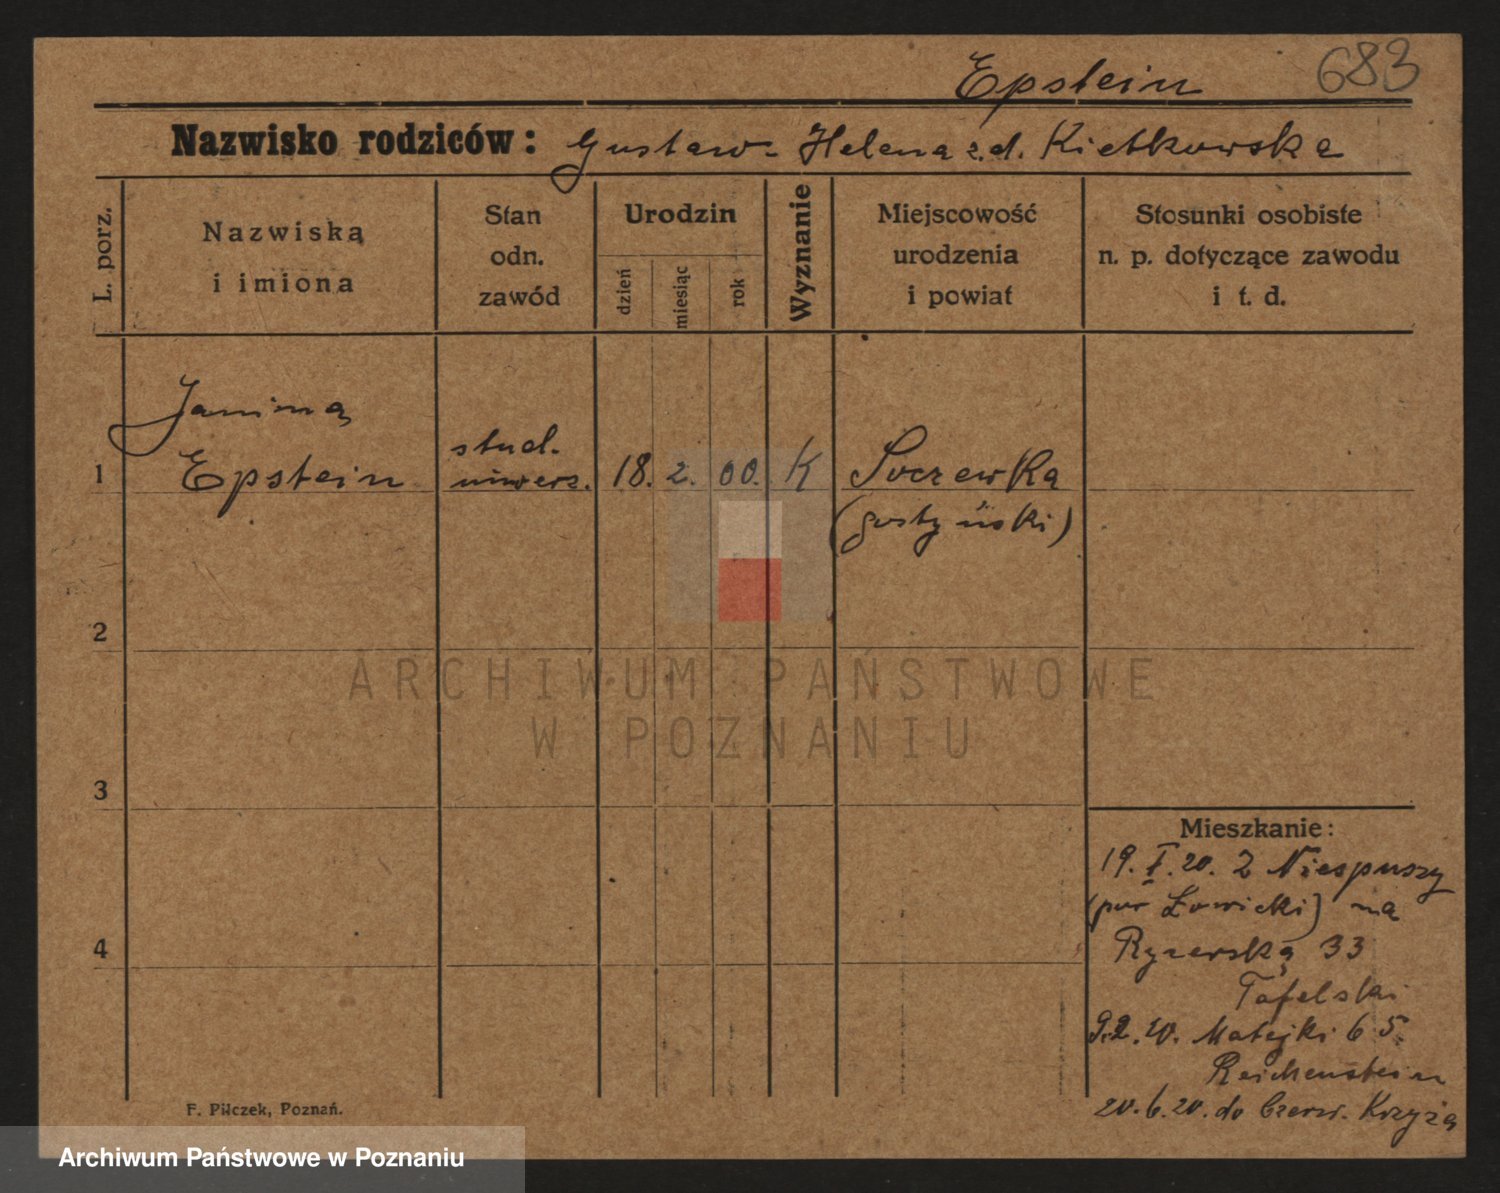 Epstein 683
Nazwisko rodziców: Gustaw - Helena z.d. Kietkowska
L. porz.
Nazwiska
i imiona
Stan
odn.
zawód
Urodzin
dzień
miesiąc
rok
Wyznanie
Miejscowość
urodzenia
i powiat
Stosunki osobiste
n. p. dotyczące zawodu
i t. d.
Janina
1 Epstein
stud.
uniwers.
18. 2. 00. K
Soczewka
(gostyński)
2
3
4
Mieszkanie:
19. I. 20. Z Niespuszy
(pow Łowicki) na
Rycerską 33
Tafelski
9.2.20. Matejki 65.
Reichenstein
20.6.20. do Czerw. Krzyża
F. Pilczek, Poznań.
ARCHIWUM PAŃSTWOWE
W POZNANIU
Archiwum Państwowe w Poznaniu